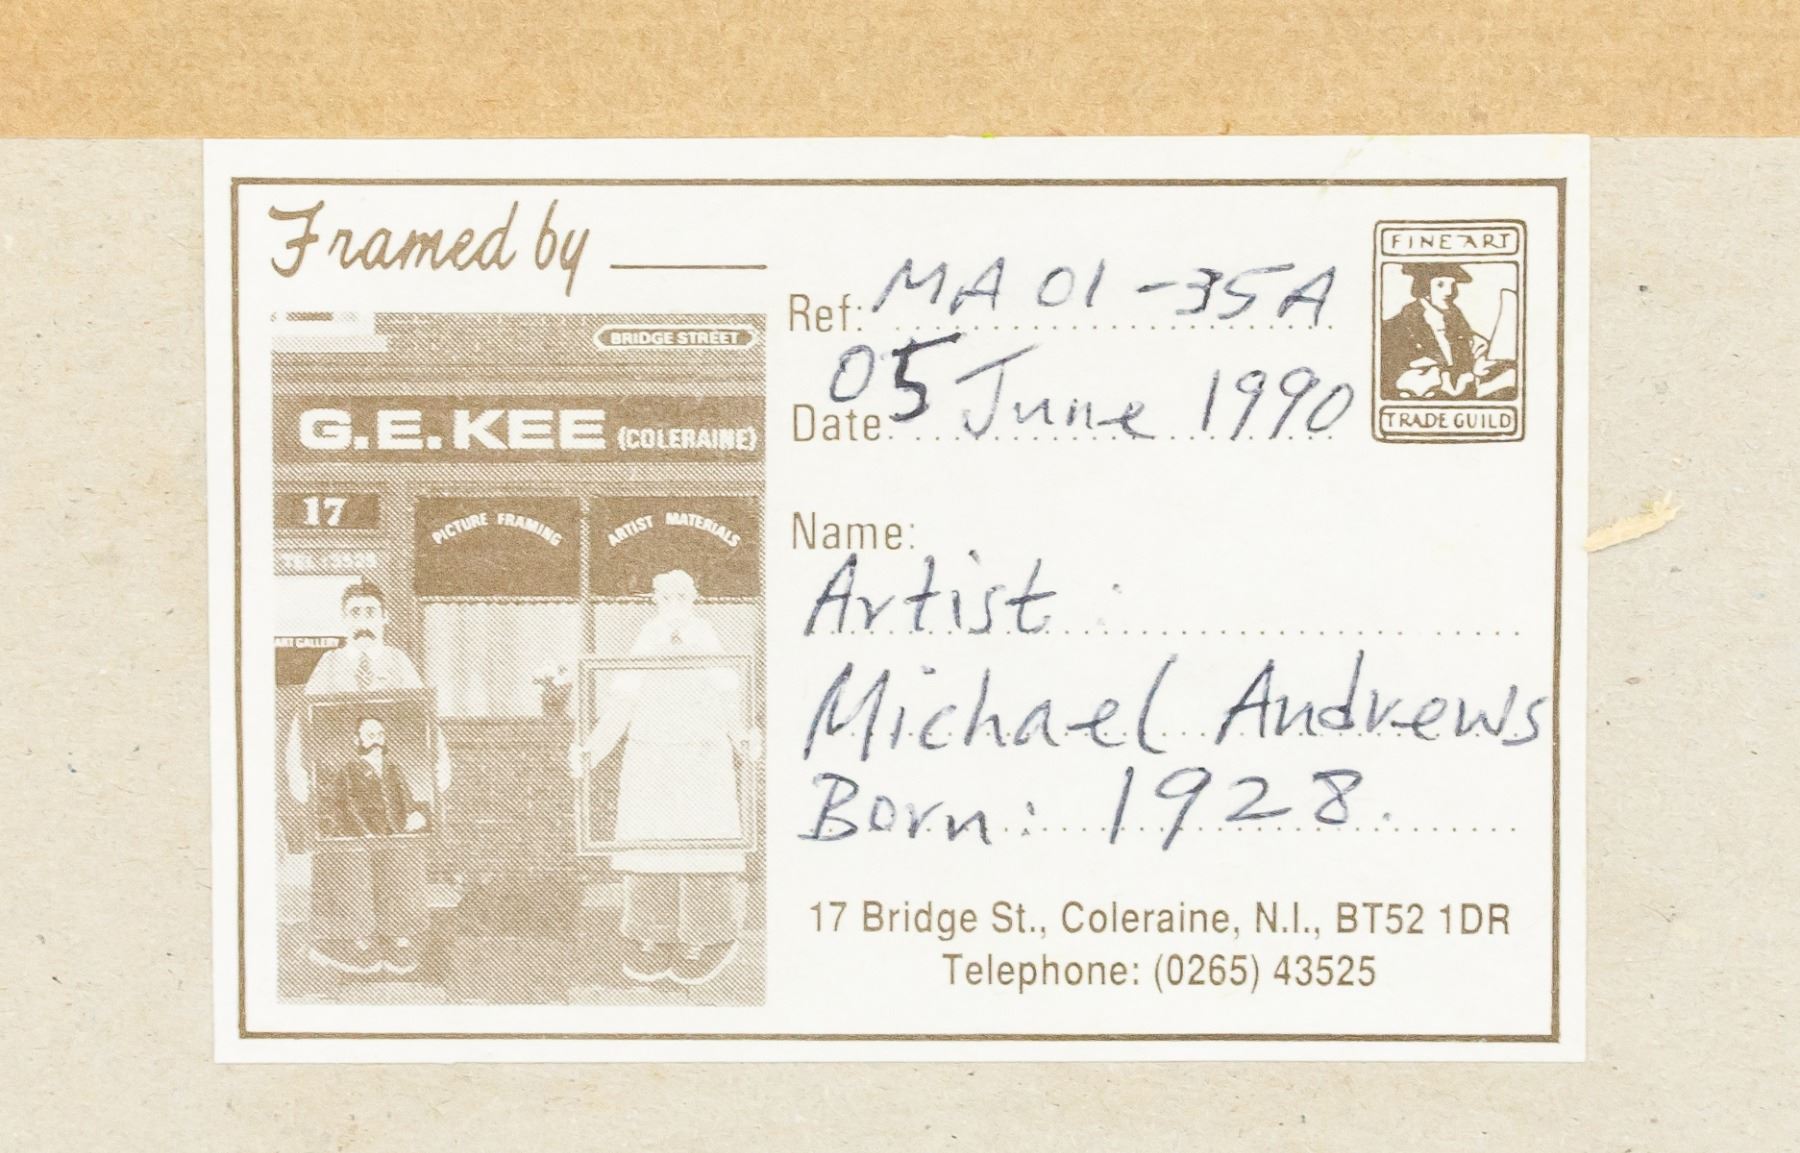 Framed by
BRIDGE STREET
G.E. KEE (COLERAINE)
17
PICTURE FRAMING
ARTIST MATERIALS
TEL. 43525
ART GALLERY
FINE ART
TRADE GUILD
Ref: MA 01 - 35A
Date 05 June 1990
Name:
Artist :
Michael Andrews
Born: 1928.
17 Bridge St., Coleraine, N.I., BT52 1DR
Telephone: (0265) 43525